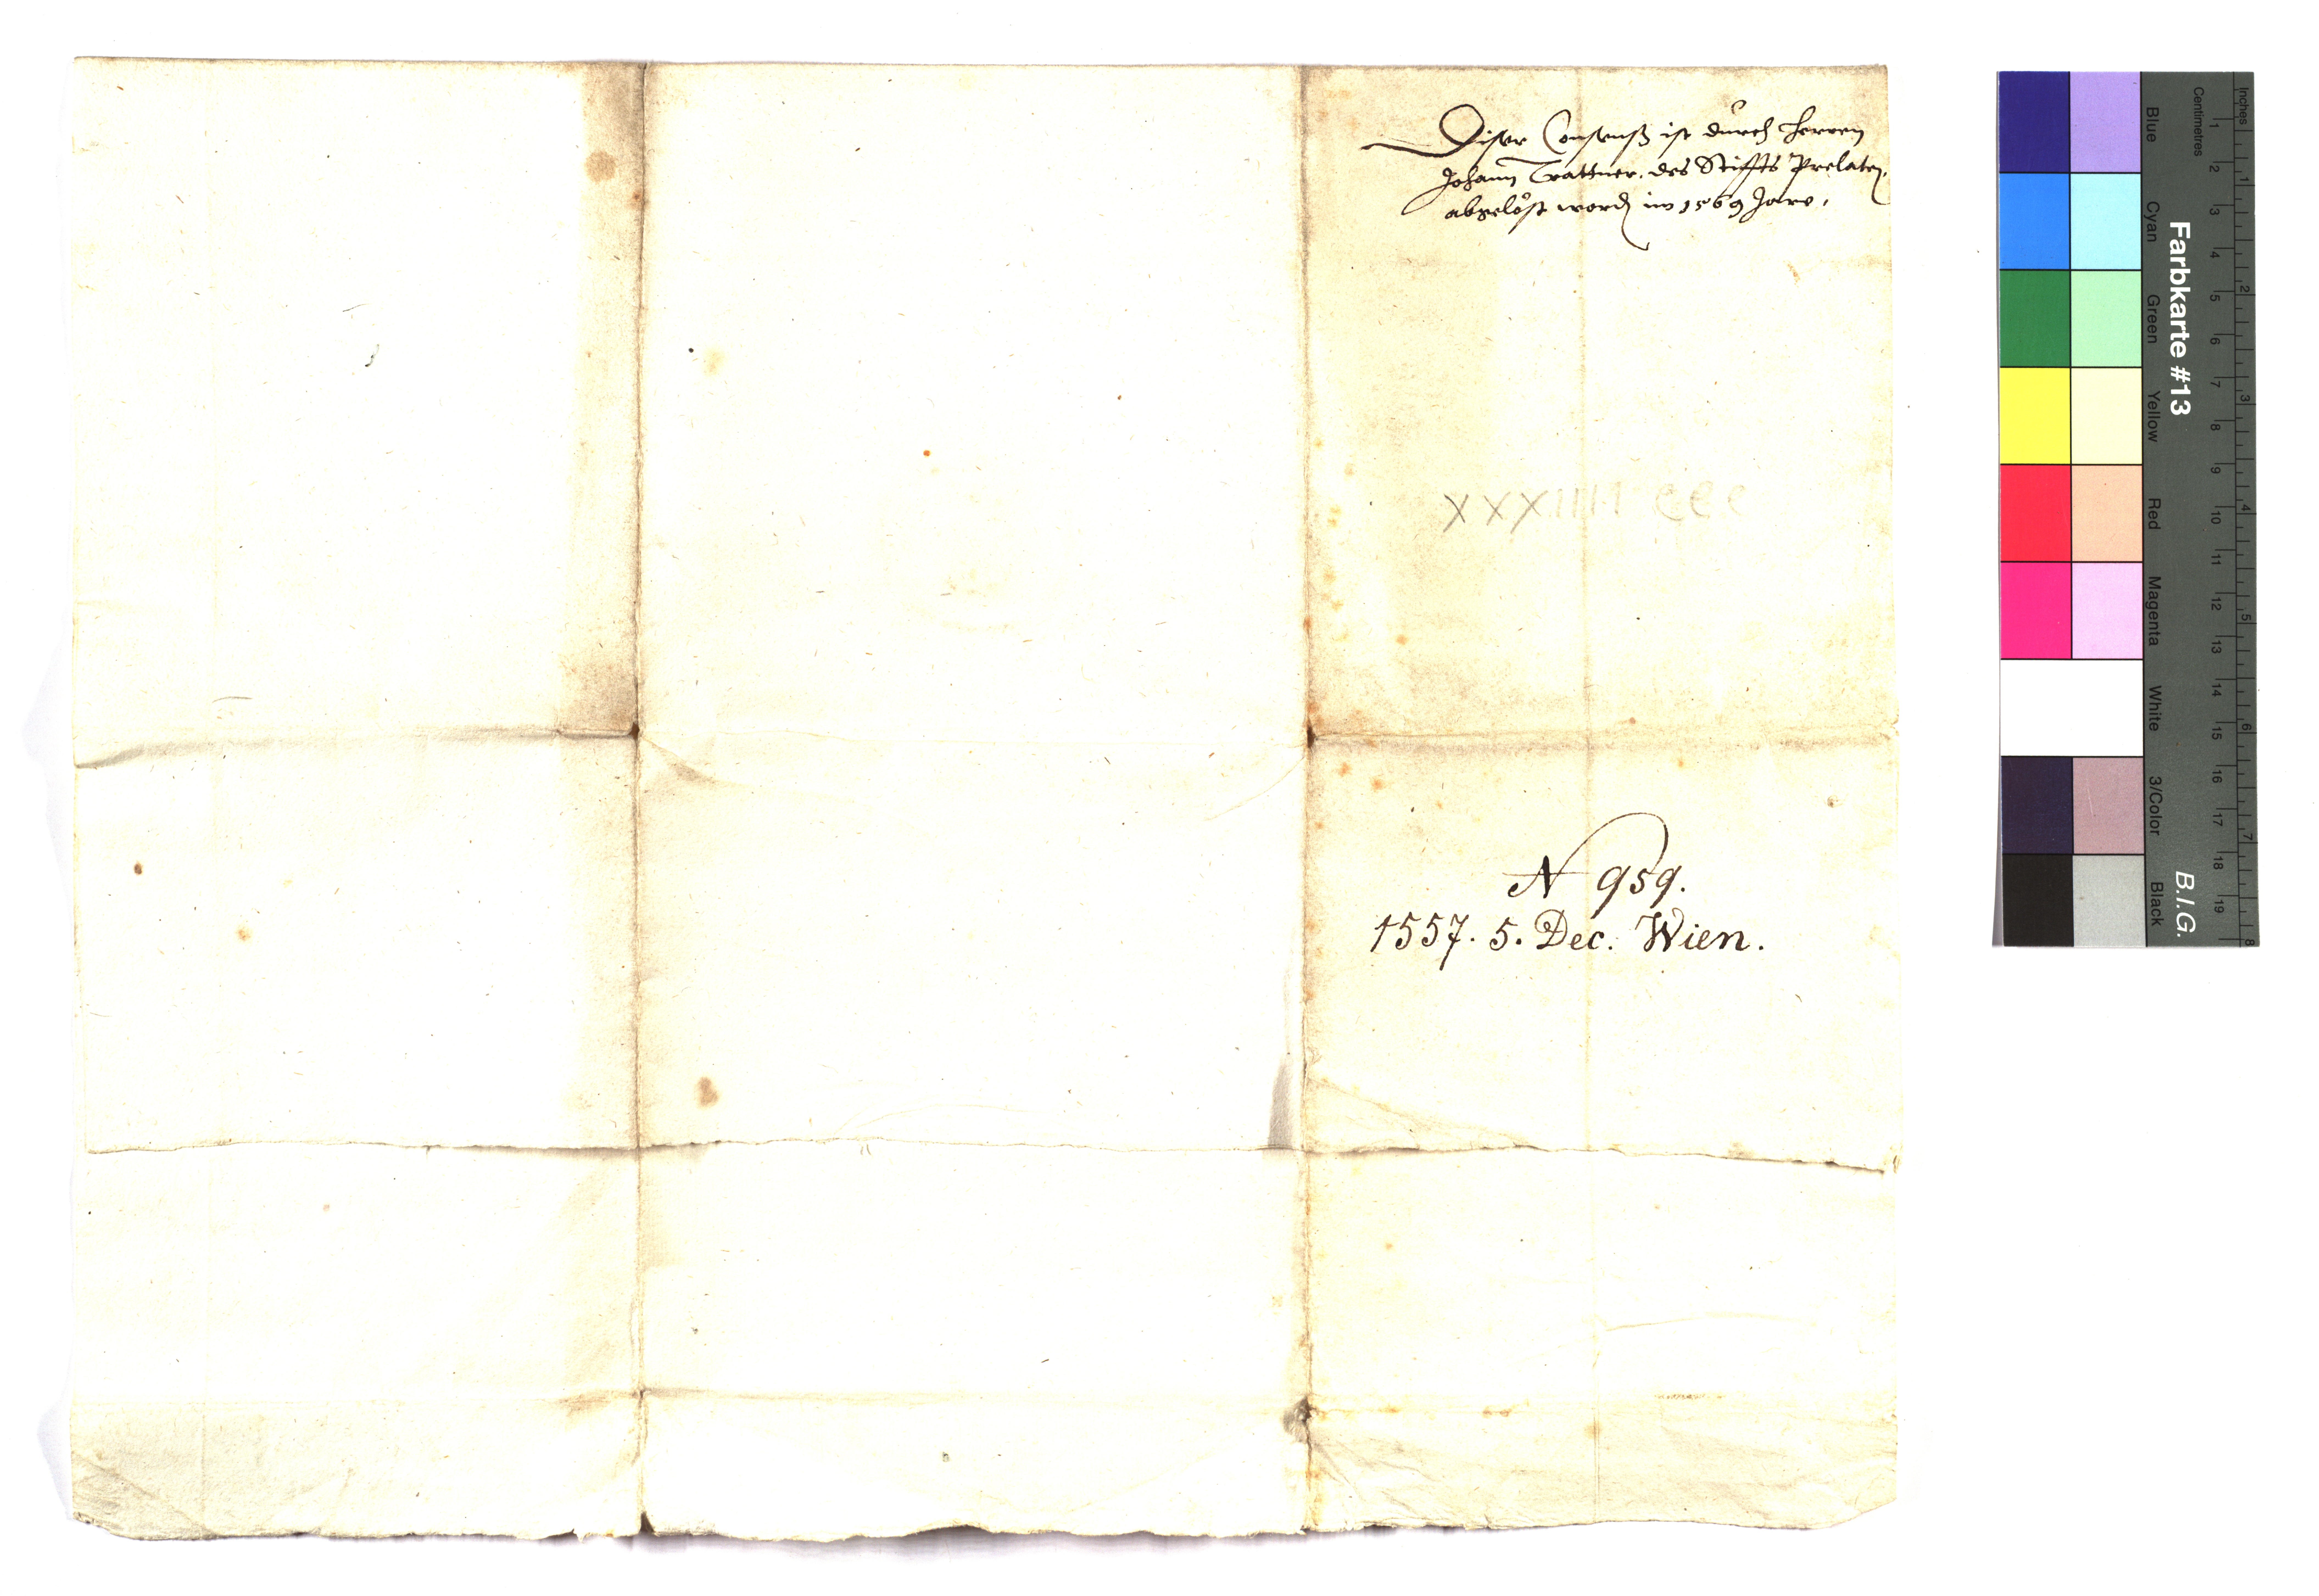 Diser Consenß ist durch herren
Johann Trattner, des Stiffts Prelaten,
abgelöst word im 1569 Jare,
XXXIIII CCC
N 959.
1557. 5. Dec. Wien.
Farbkarte #13
B.I.G.
Centimetres
Inches
Blue
Cyan
Green
Yellow
Red
Magenta
White
3/Color
Black
1 2 3 4 5 6 7 8 9 10 11 12 13 14 15 16 17 18 19
1 2 3 4 5 6 7 8